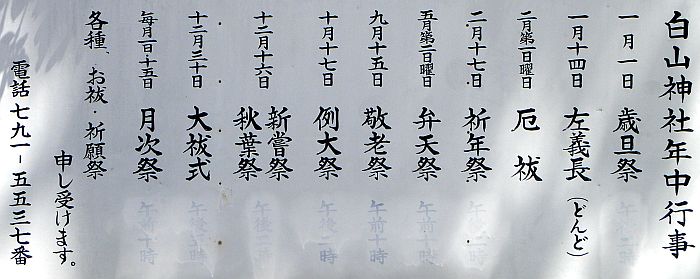 白山神社年中行事
一月一日 歳旦祭
一月十四日 左義長（どんど）
二月第一日曜日 厄祓
二月十七日 祈年祭
五月第二日曜日 弁天祭
九月十五日 敬老祭 午前十時
十月十七日 例大祭
十二月十六日 新嘗祭
秋葉祭
十二月三十日 大祓式
毎月一日・十五日 月次祭 午前十時
各種、お祓・祈願祭
申し受けます。
電話七九一－五五三七番